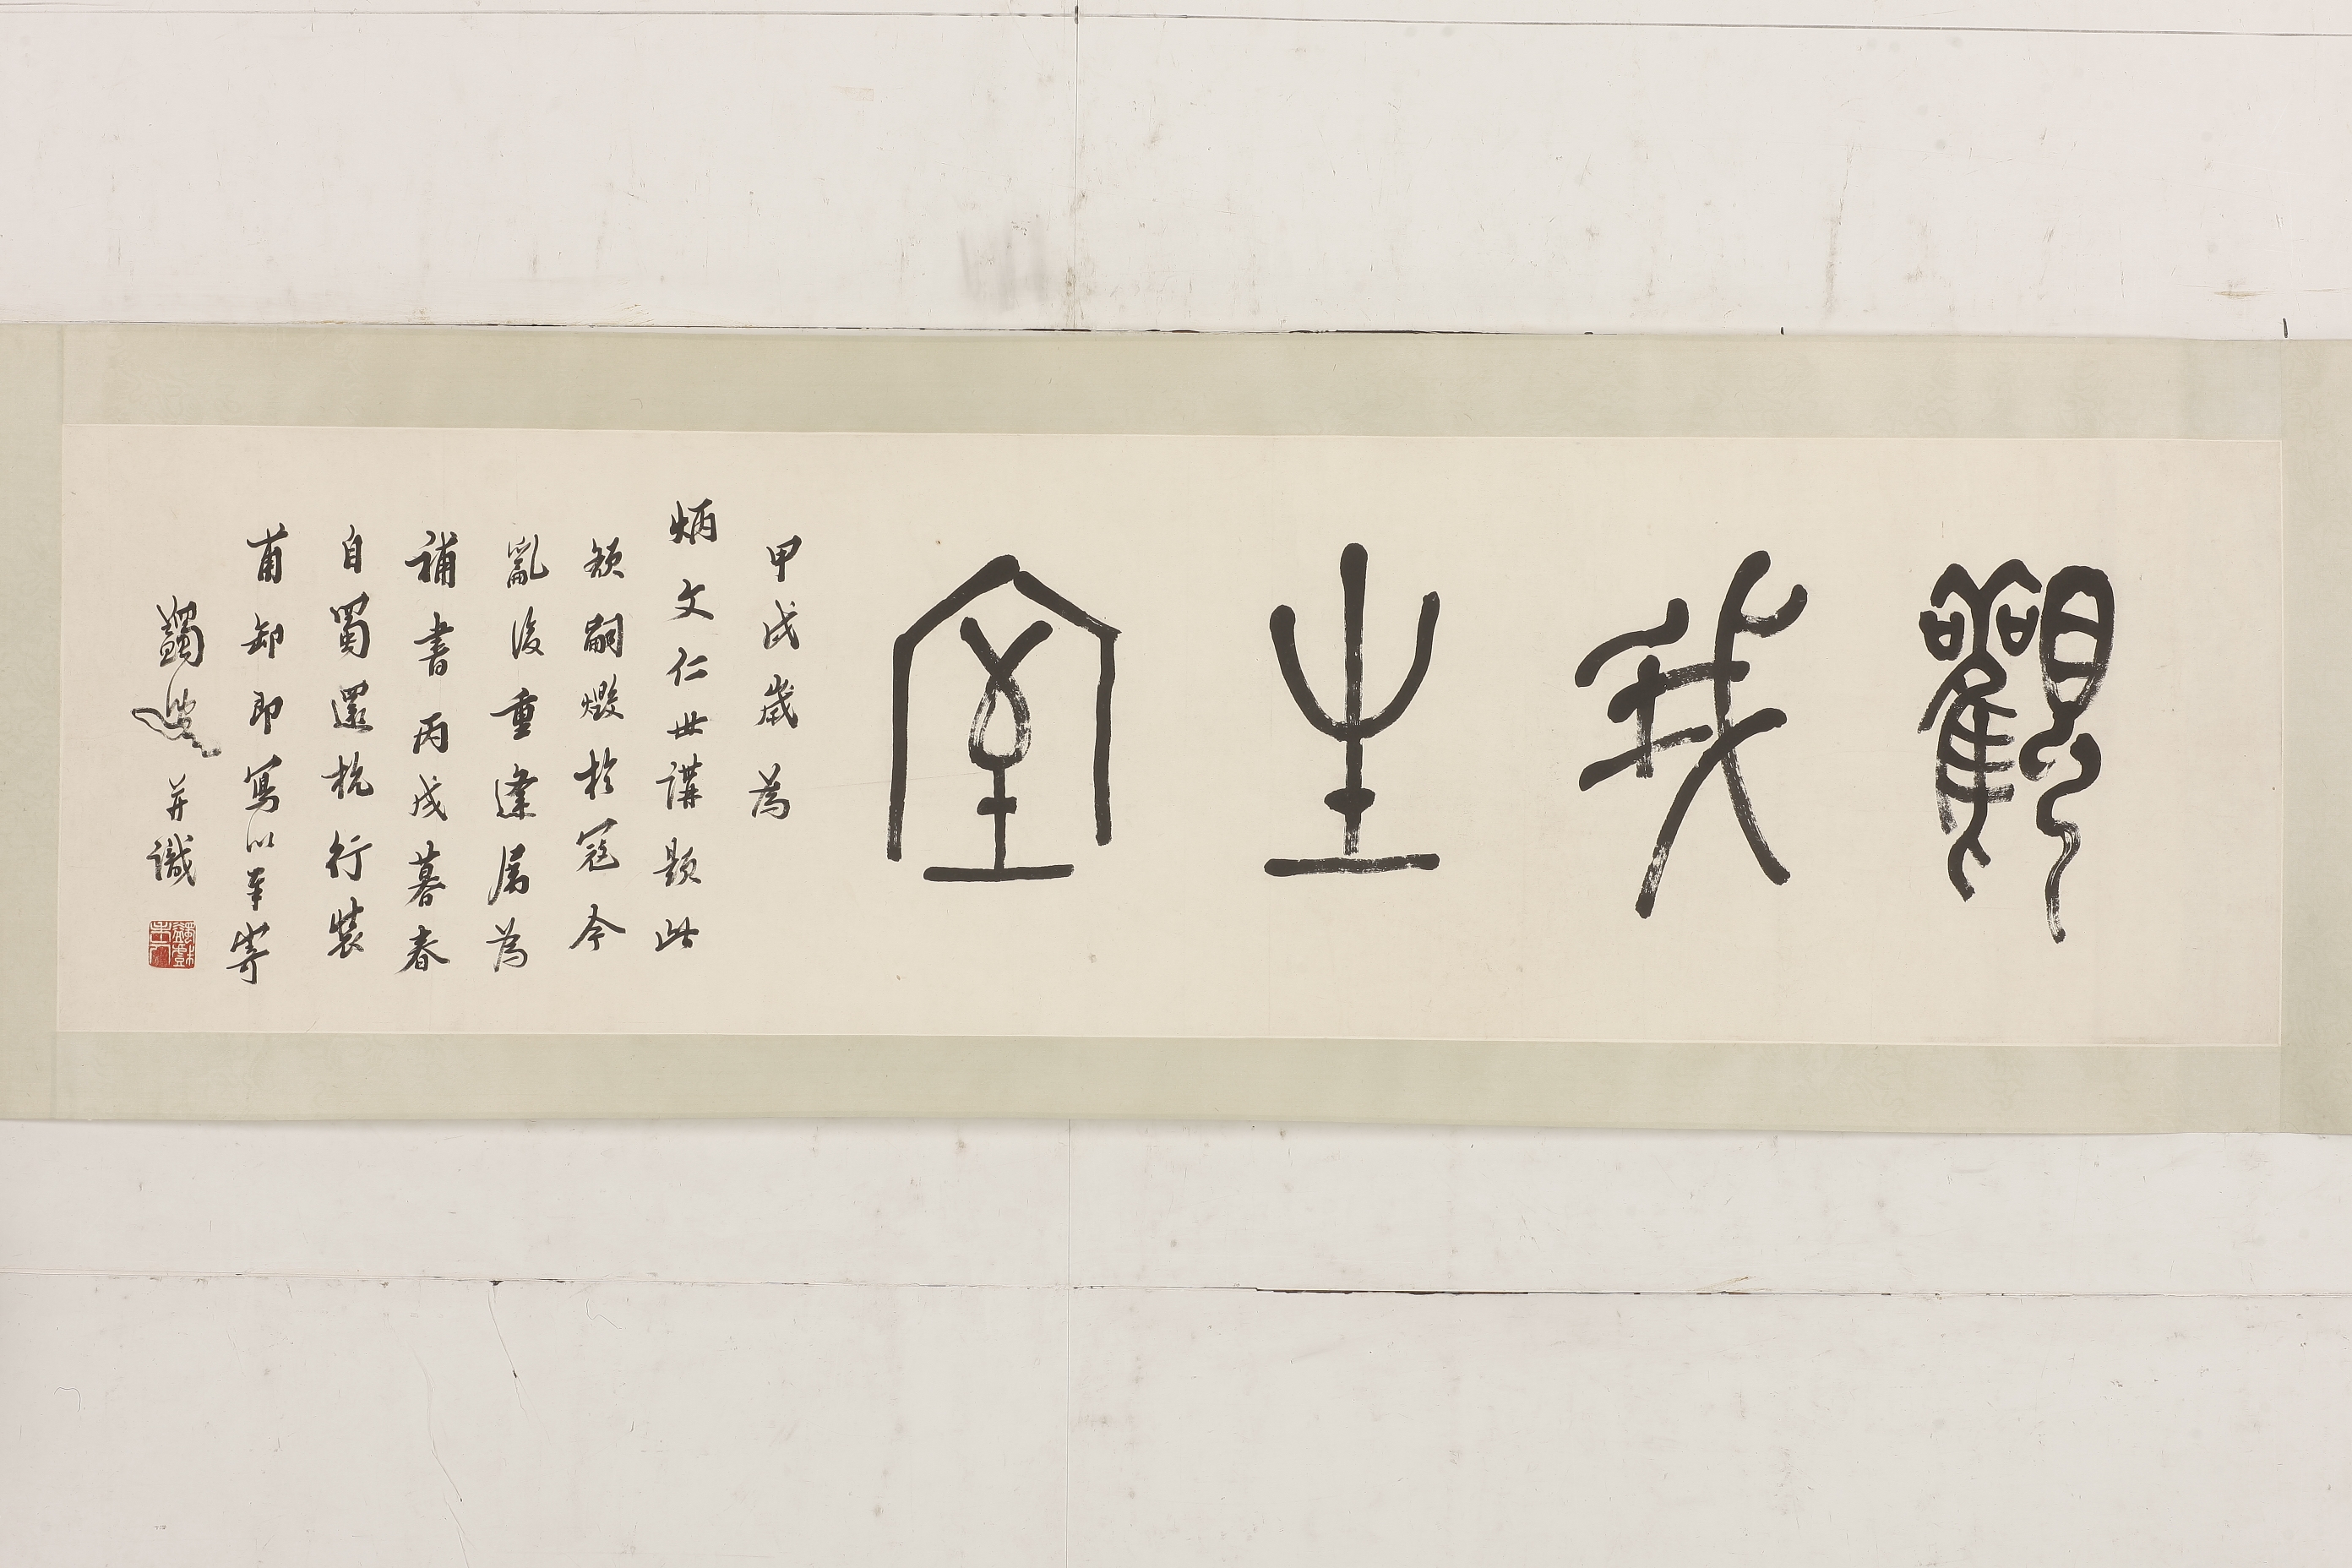 觀我生室
甲戌歲為
炳文仁世講題此
額嗣燬於寇今
亂後重逢屬為
補書丙戌暮春
自蜀還杭行裝
甫卸即寫以奉寄
蠲叟并識